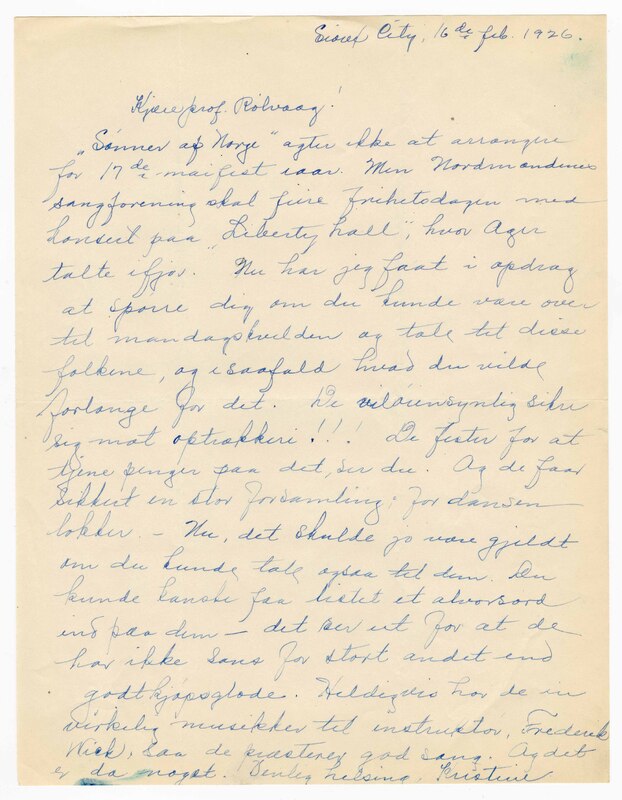 Sioux City, 16de feb. 1926.
Kjære prof. Rölvaag!
„Sønner af Norge" agter ikke at arrangere
for 17de maifest iaar. Men Nordmændenes
sangforening skal feire frihetsdagen med
konsert paa "Liberty hall", hvor Ager
talte ifjor. Nu har jeg faat i opdrag
at spørre dig om du kunde være over
til mandagskvelden og tale til disse
folkene, og isaafald hvad du vilde
forlange for det. De vil øiensynlig sikre
sig mot optrækkeri!!! De fester for at
tjene penger paa det, ser du. Og de faar
sikkert en stor forsamling; for dansen
lokker. – Nu, det skulde jo være gjildt
om du kunde tale ogsaa til dem. Du
kunde kanske faa listet et alvorsord
ind paa dem – det ser ut for at de
har ikke sans for stort andet end
godtkjøpsglæde. Heldigvis har de en
virkelig musikker til instructor, Frederick
Wick, saa de præsterer god sang. Og det
er da noget. Venlig helsing, Kristine